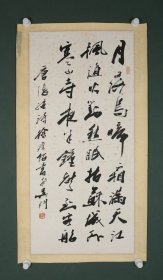 月落烏啼霜滿天江
楓漁火對愁眠姑蘇城外
寒山寺夜半鐘聲到客船
唐張繼詩